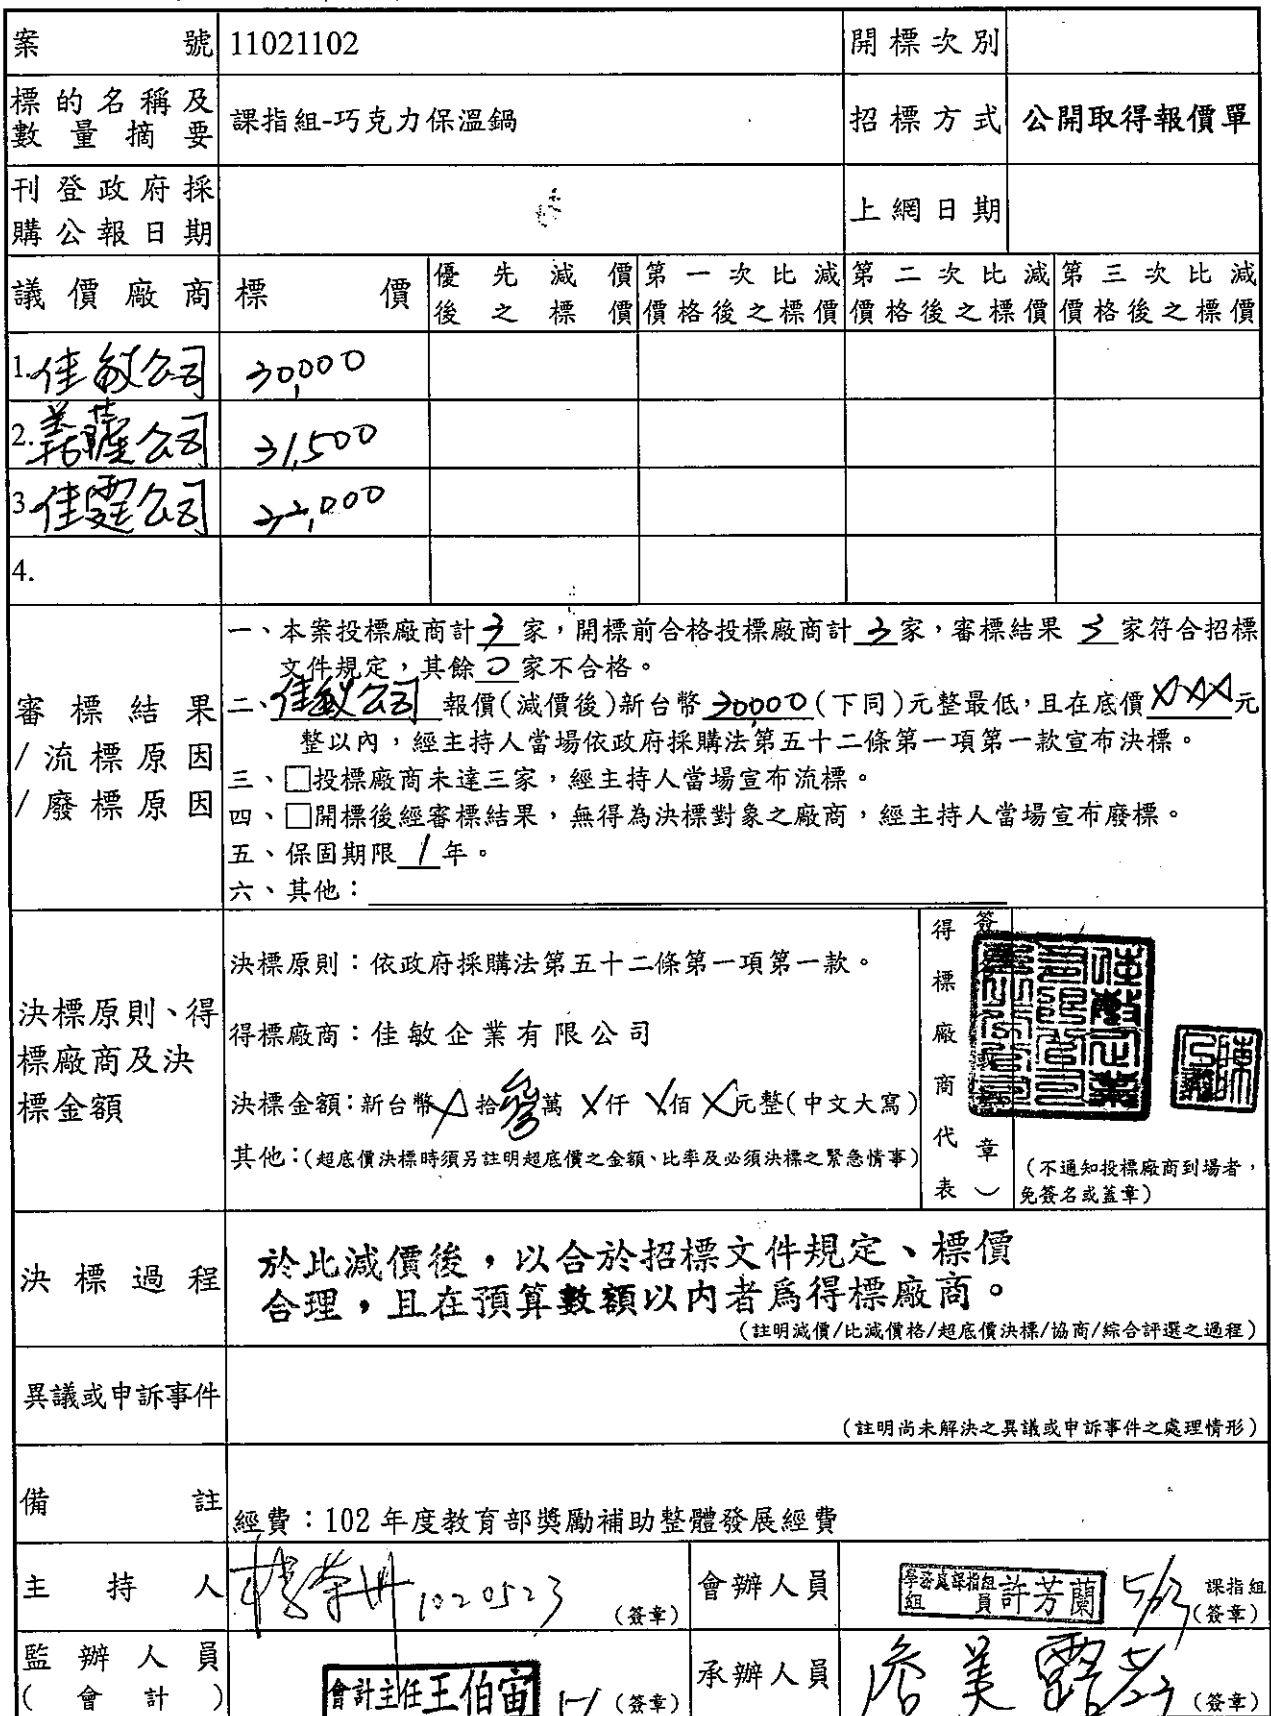 案號 11021102 開標次別
標的名稱及數量摘要 課指組-巧克力保溫鍋 招標方式 公開取得報價單
刊登政府採購公報日期 上網日期
議價廠商 標價 優先減價後之標價 第一次比減價格後之標價 第二次比減價格後之標價 第三次比減價格後之標價
1.佳敏公司 30,000
2. 公司 31,500
3.佳霆公司 32,000
4.
審標結果/流標原因/廢標原因
一、本案投標廠商計3家，開標前合格投標廠商計3家，審標結果3家符合招標
文件規定，其餘0家不合格。
二、佳敏公司報價(減價後)新台幣30000(下同)元整最低，且在底價XXX元
整以內，經主持人當場依政府採購法第五十二條第一項第一款宣布決標。
三、□投標廠商未達三家，經主持人當場宣布流標。
四、□開標後經審標結果，無得為決標對象之廠商，經主持人當場宣布廢標。
五、保固期限1年。
六、其他：
決標原則、得標廠商及決標金額
決標原則：依政府採購法第五十二條第一項第一款。
得標廠商：佳敏企業有限公司
決標金額：新台幣X拾參萬X仟X佰X元整(中文大寫)
其他：(超底價決標時須另註明超底價之金額、比率及必須決標之緊急情事)
得標廠商代表
簽 章）
(不通知投標廠商到場者，
免簽名或蓋章)
決標過程
於比減價後，以合於招標文件規定、標價
合理，且在預算數額以內者為得標廠商。
(註明減價/比減價格/超底價決標/協商/綜合評選之過程)
異議或申訴事件
(註明尚未解決之異議或申訴事件之處理情形)
備註
經費：102年度教育部獎勵補助整體發展經費
主持人 1020523 (簽章) 會辦人員 學務處課指組組員許芳蘭 課指組
(簽章)
監辦人員(會計) 會計主任王伯宙 (簽章) 承辦人員 詹美露 5/23 (簽章)